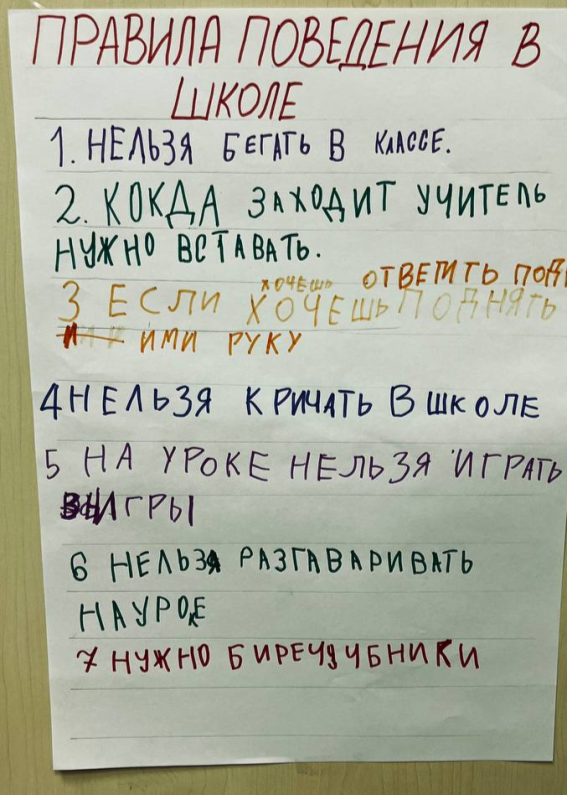 ПРАВИЛА ПОВЕДЕНИЯ В
ШКОЛЕ
1. НЕЛЬЗЯ БЕГАТЬ В КЛАССЕ.
2. КОКДА ЗАХОДИТ УЧИТЕЛЬ
НУЖНО ВСТАВАТЬ.
хочешь ОТВЕТИТЬ ПОД
3 ЕСЛИ ХОЧЕШЬ ПОДНЯТЬ
ИМИ РУКУ
4 НЕЛЬЗЯ КРИЧАТЬ В ШКОЛЕ
5 НА УРОКЕ НЕЛЬЗЯ ИГРАТЬ
ВЫИГРЫ
6 НЕЛЬЗЯ РАЗГАВАРИВАТЬ
НАУРОКЕ
7 НУЖНО БИРЕЧУЧБНИКИ